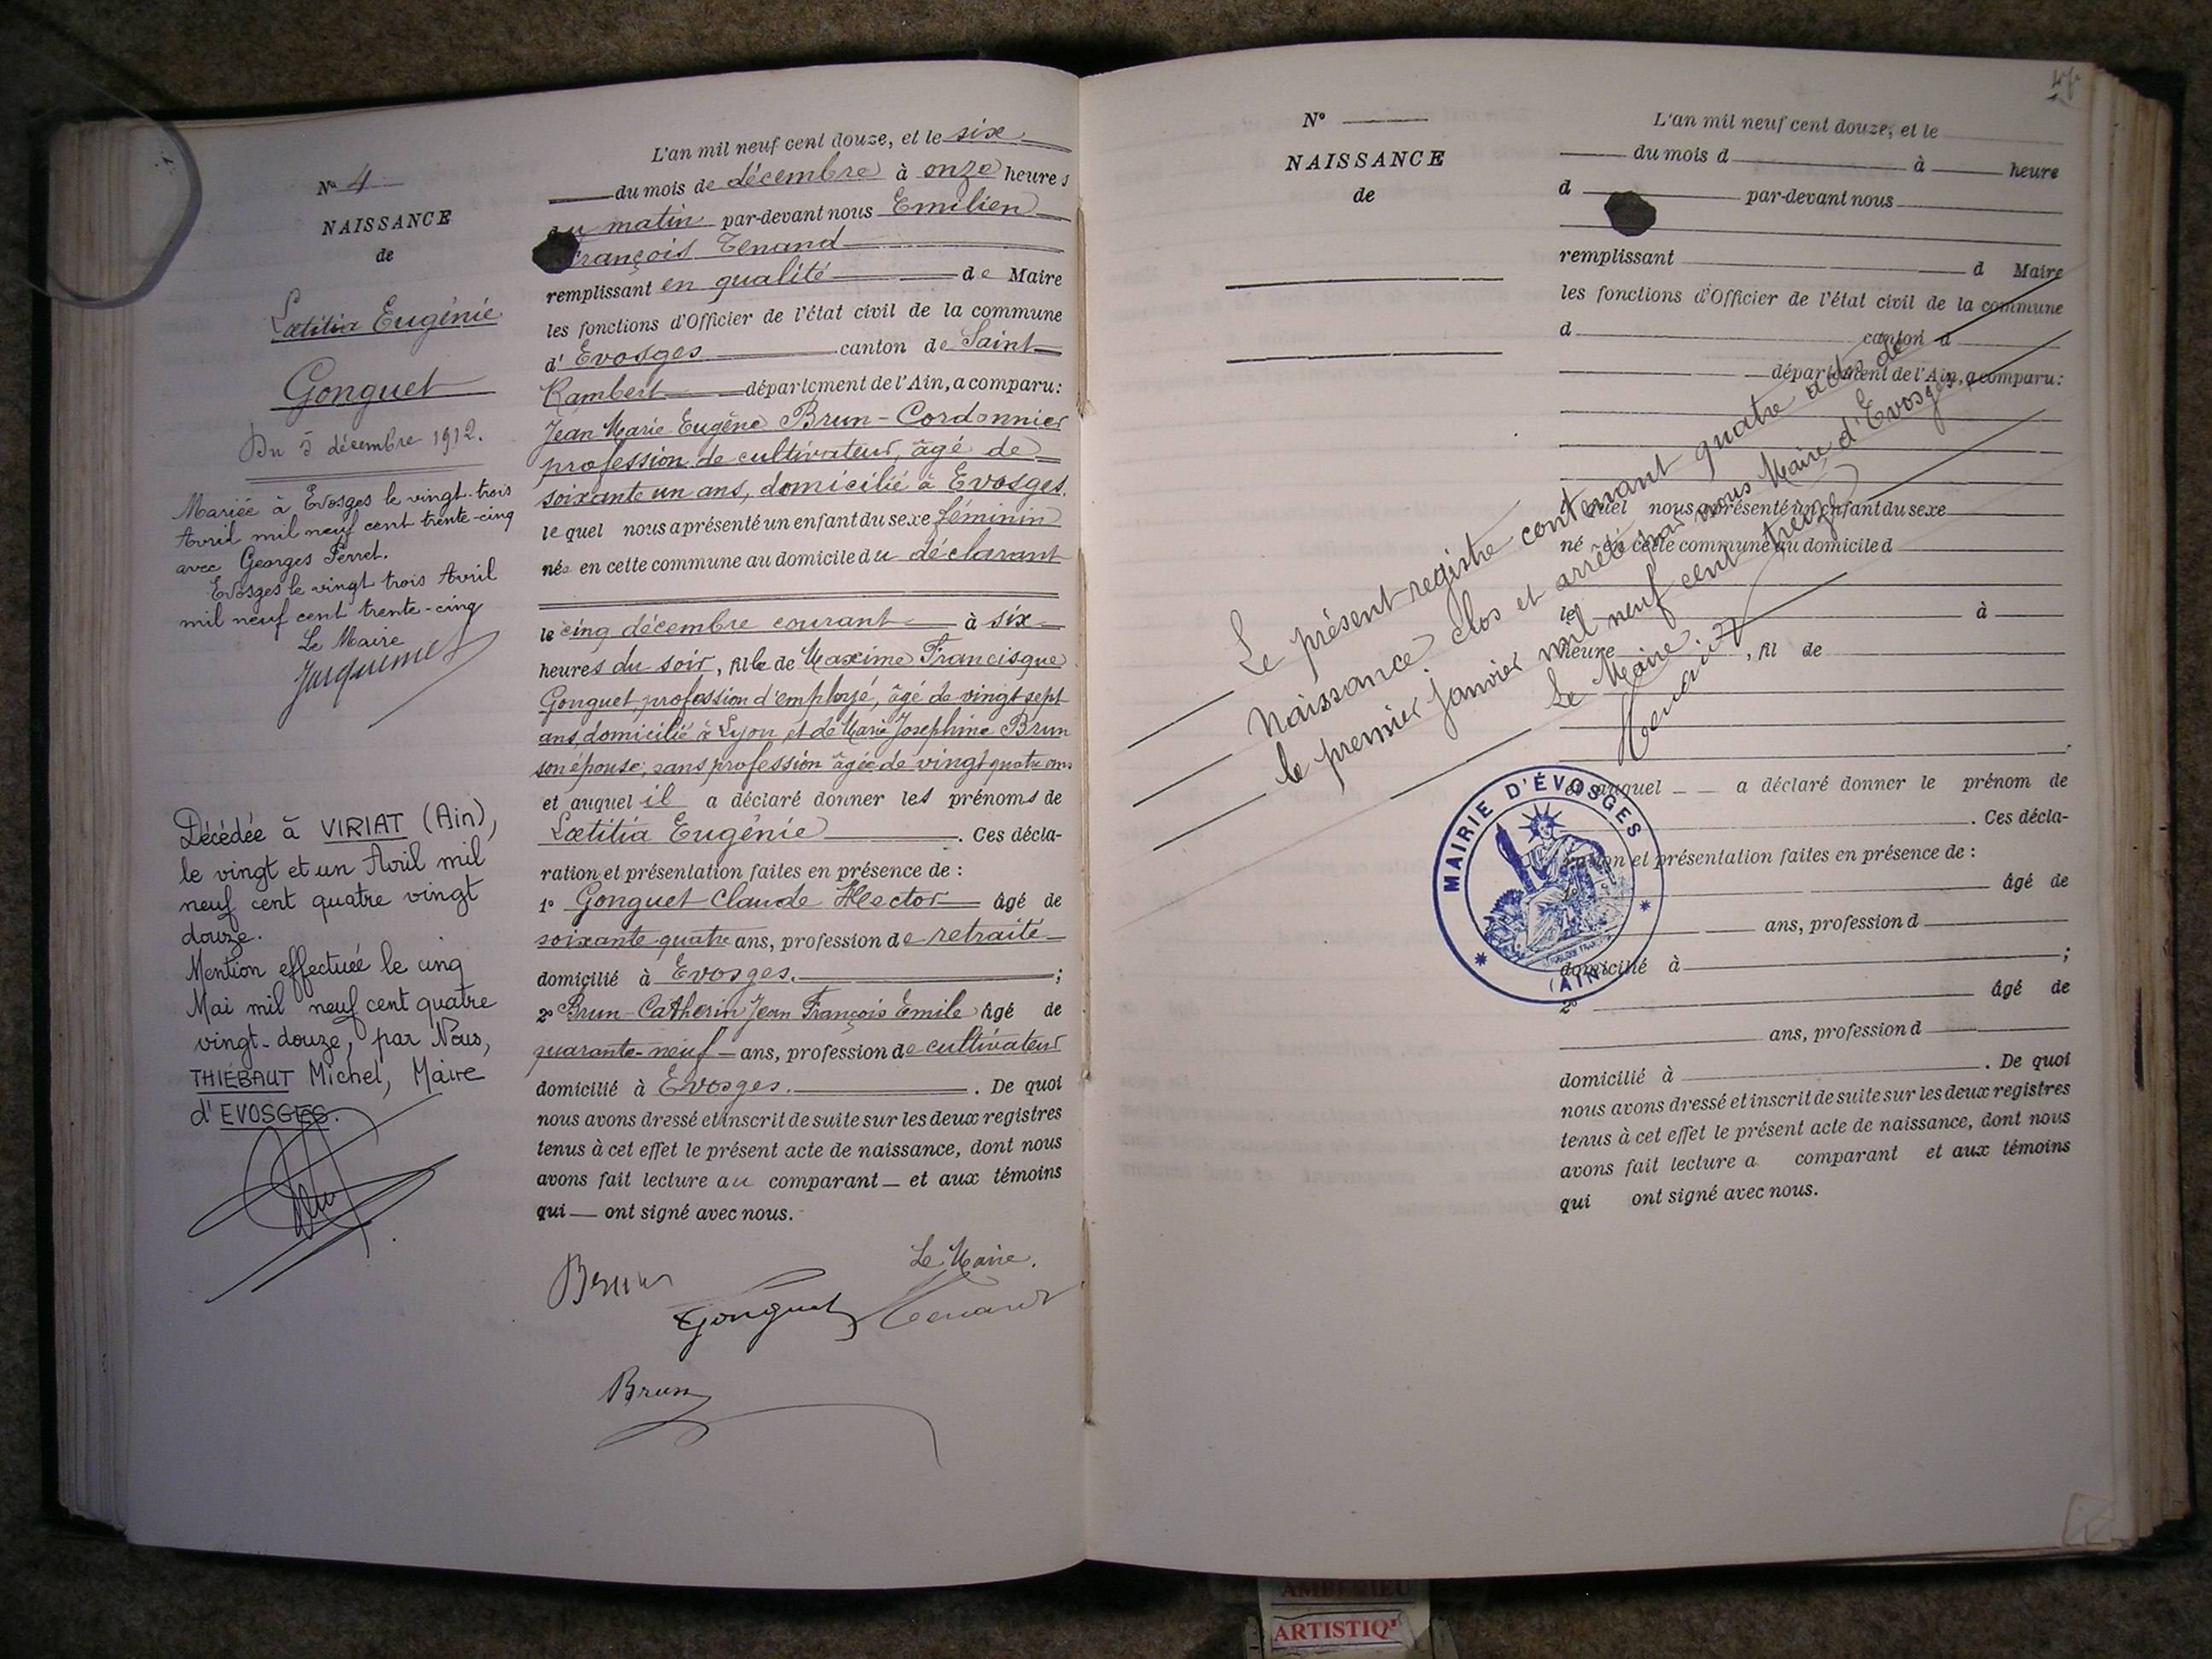 N° 4
NAISSANCE
de
Lœtitia Eugénie
Gonguet
Du 5 décembre 1912.
Mariée à Evosges le vingt-trois
Avril mil neuf cent trente-cinq
avec Georges Perret.
Evosges le vingt trois Avril
mil neuf cent trente-cinq
Le Maire
Décédée à VIRIAT (Ain),
le vingt et un Avril mil
neuf cent quatre vingt
douze.
Mention effectuée le cinq
Mai mil neuf cent quatre
vingt-douze, par Nous,
THIÉBAUT Michel, Maire
d'EVOSGES.
L'an mil neuf cent douze, et le six
du mois de décembre à onze heures
du matin par-devant nous Emilien
François Tenand
remplissant en qualité de Maire
les fonctions d'Officier de l'état civil de la commune
d'Evosges canton de Saint-
Rambert département de l'Ain, a comparu:
Jean Marie Eugène Brun-Cordonnier
profession de cultivateur, âgé de
soixante un ans, domicilié à Evosges.
le quel nous a présenté un enfant du sexe féminin
née en cette commune au domicile du déclarant
le cinq décembre courant à six
heures du soir, fille de Maxime Francisque
Gonguet profession d'employé, âgé de vingt sept
ans, domicilié à Lyon, et de Marie Josephine Brun
son épouse, sans profession âgée de vingt quatre ans
et auquel il a déclaré donner les prénoms de
Lœtitia Eugénie. Ces décla-
ration et présentation faites en présence de :
1° Gonguet Claude Hector âgé de
soixante quatre ans, profession de retraité
domicilié à Evosges. ;
2° Brun-Catherin Jean François Emile âgé de
quarante-neuf ans, profession de cultivateur
domicilié à Evosges. . De quoi
nous avons dressé et inscrit de suite sur les deux registres
tenus à cet effet le présent acte de naissance, dont nous
avons fait lecture au comparant et aux témoins
qui ont signé avec nous.
Le Maire.
Brun
Gonguet Tenand
Brun
N°
NAISSANCE
de
L'an mil neuf cent douze, et le
du mois d à heure
d par-devant nous
remplissant d Maire
les fonctions d'Officier de l'état civil de la commune
d canton d
département de l'Ain, a comparu:
l quel nous a présenté un enfant du sexe
né en cette commune au domicile d
le à
heure , fil de
et auquel a déclaré donner le prénom de
. Ces décla-
ration et présentation faites en présence de :
1° âgé de
ans, profession d
domicilié à ;
2° âgé de
ans, profession d
domicilié à . De quoi
nous avons dressé et inscrit de suite sur les deux registres
tenus à cet effet le présent acte de naissance, dont nous
avons fait lecture a comparant et aux témoins
qui ont signé avec nous.
Le présent registre contenant quatre actes de
Naissance clos et arrêté par nous Maire d'Evosges
le premier janvier mil neuf cent treize
Le Maire.
Tenand
MAIRIE D'ÉVOSGES
(AIN)
AMBERIEU
ARTISTIQ